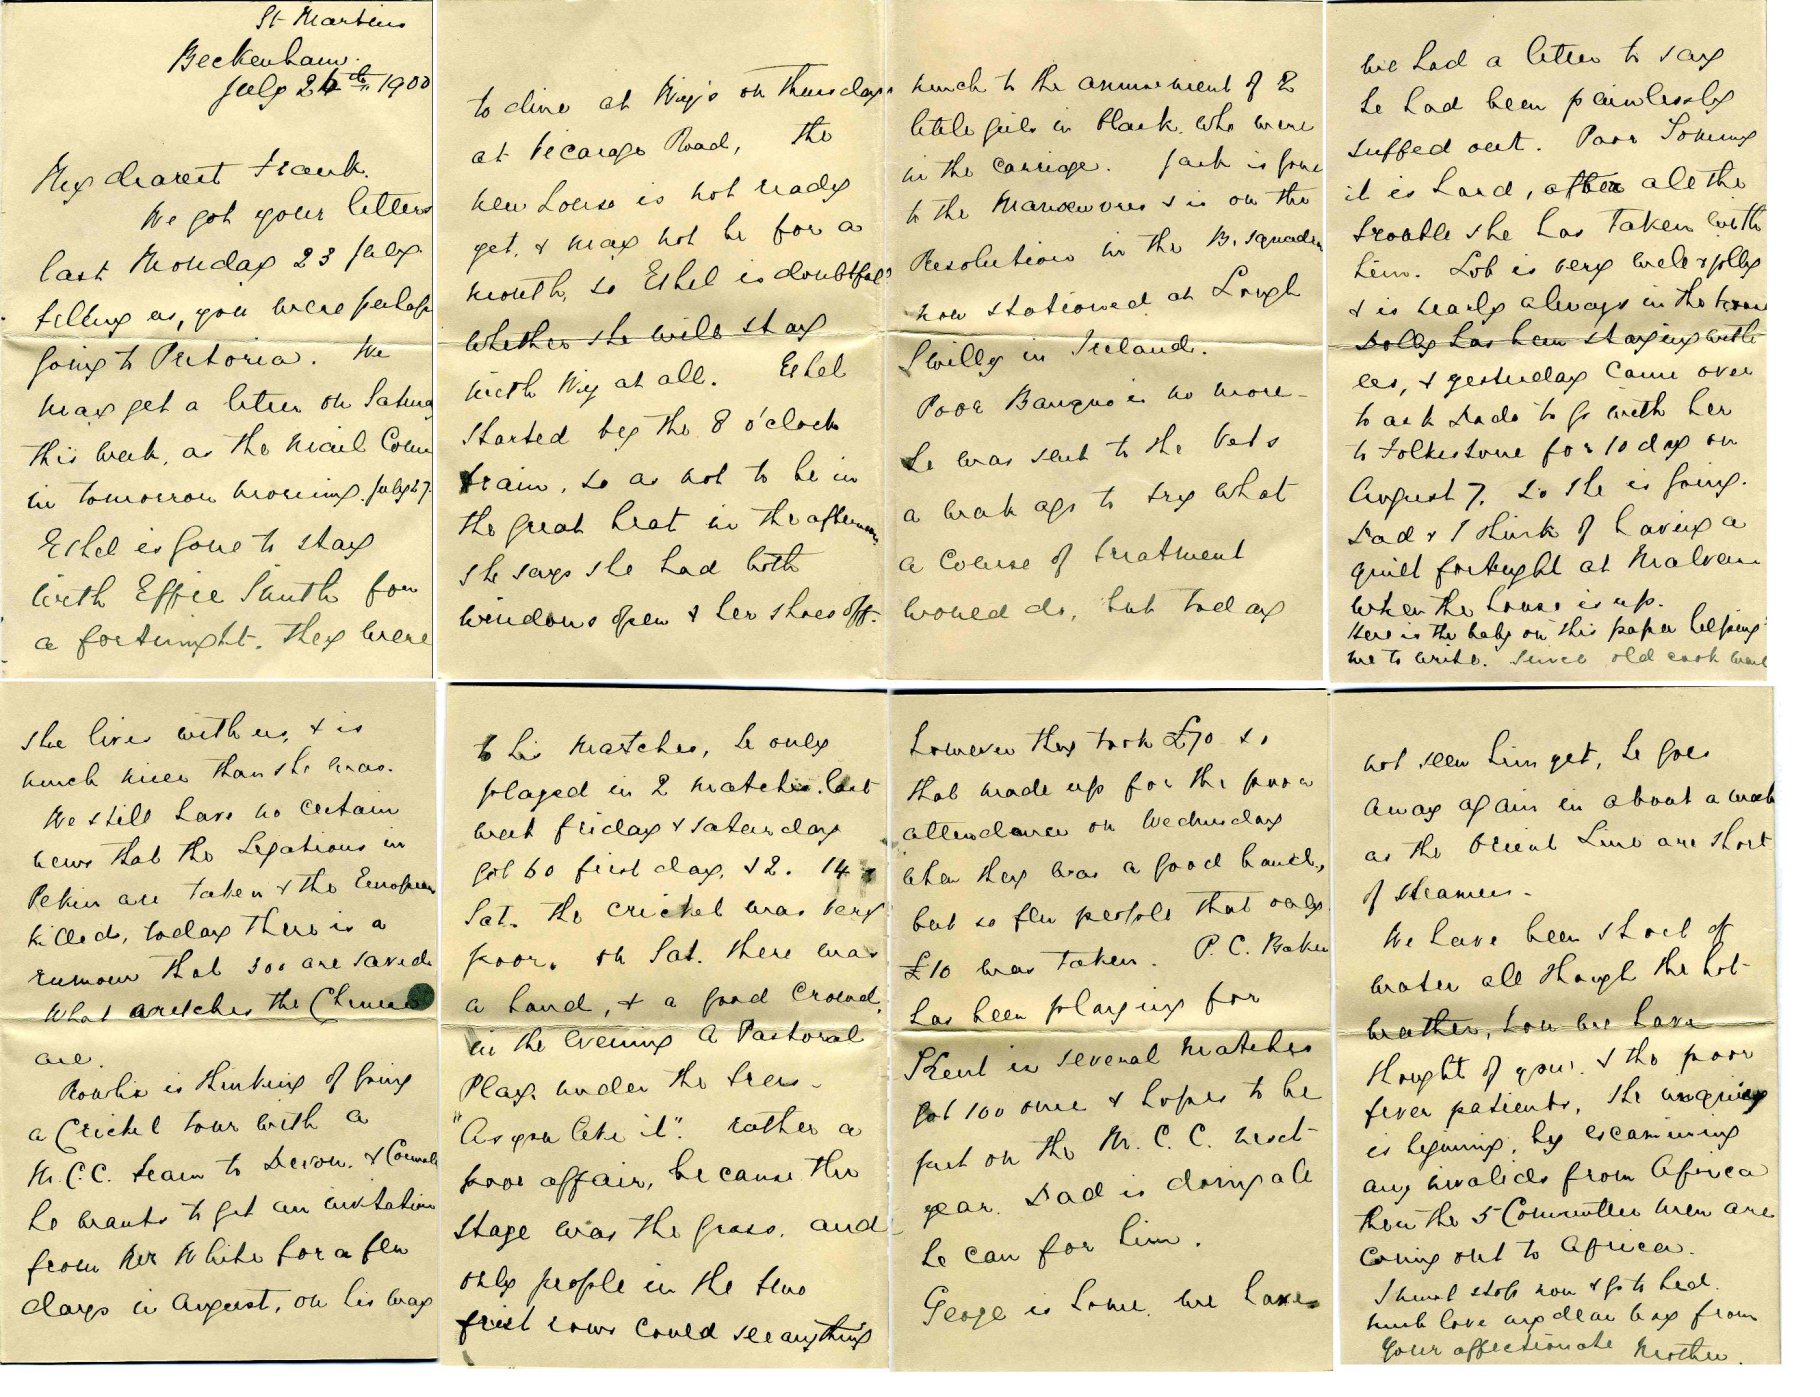 St Martins
Beckenham.
July 26th 1900
My dearest Frank.
We got your letters
last Monday 23 July
telling us, you were perhaps
going to Pretoria. We
may get a letter on Saturday
this week, as the mail comes
in tomorrow morning. July 27.
Ethel is gone to stay
with Effie Smith for
a fortnight. They were
to dine at Wig's on Thursday
at Vicarage Road, the
new house is not ready
yet, & may not be for a
month, so Ethel is doubtful
whether she will stay
with Wig at all. Ethel
started by the 8 o'clock
train, so as not to be in
the great heat in the afternoon,
she says she had both
windows open & her shoes off.
much to the amusement of 2
little girls in black who were
in the carriage. Jack is gone
to the Manoeuvres & is on the
Resolution in the B. Squadron
now stationed at Lough
Swilly in Ireland.
Poor Banquo is no more -
he was sent to the Vets
a week ago to try what
a course of treatment
would do, but today
we had a letter to say
he had been painlessly
suffed out. Poor Tommy
it is hard, after all the
trouble she has taken with
him. Lob is very well & jolly
& is nearly always in the house
Dolly has been staying with
us, & yesterday came over
to ask Dads to go with her
to Folkestone for 10 days on
August 7, so she is going.
Dad & I think of having a
quiet fortnight at Malvern
when the house is up.
Here is the baby on this paper helping
me to write. Since old cook went
she lives with us, & is
much nicer than she was.
We still have no certain
news that the Legations in
Pekin are taken & the Europeans
killed, today there is a
rumour that 500 are saved.
What wretches the Chinese
are.
Rowlie is thinking of going
a Cricket tour with a
M.C.C. team to Devon. & Cornwall
he wants to get an invitation
from Mrs White for a few
days in August, on his way
to his matches, he only
played in 2 matches last
week Friday & Saturday
got 60 first day, & 2. 14
Sat. the cricket was very
poor. on Sat. there was
a band, & a good crowd,
in the evening a Pastoral
Play under the trees -
"As you like it". rather a
poor affair, because the
stage was the grass. and
only people in the two
first rows could see anything
however they took £70 so
that made up for the poor
attendance on Wednesday
when they was a good band,
but so few people that only
£10 was taken. P. C. Baker
has been playing for
Kent in several matches
got 100 once & hopes to be
put on the M. C. C. next
year. Dad is doing all
he can for him.
George is home. we have
not seen him yet, he goes
away again in about a week
as the Orient Line are short
of steamers -
We have been short of
water all though the hot
weather, how we have
thought of you. & the poor
fever patients, the inquiry
is begining, by examining
any invalids from Africa
then the 5 Committee men are
coming out to Africa.
I must stop now & go to bed.
much love my dear boy from
your affectionate Mother.